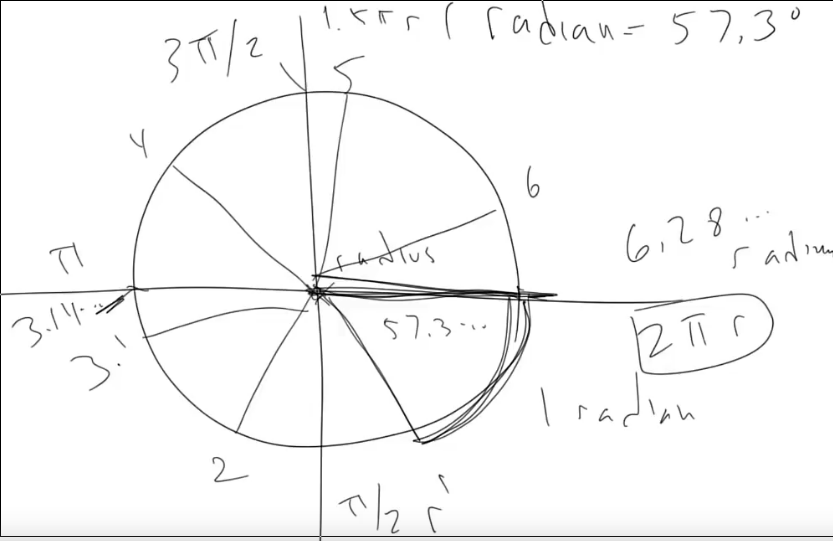 1.5πr 1 radian = 57.3°
3π/2
5
4
6
π
radius
6.28... radians
3.14...
57.3...
2πr
3.
1 radian
2
π/2 r